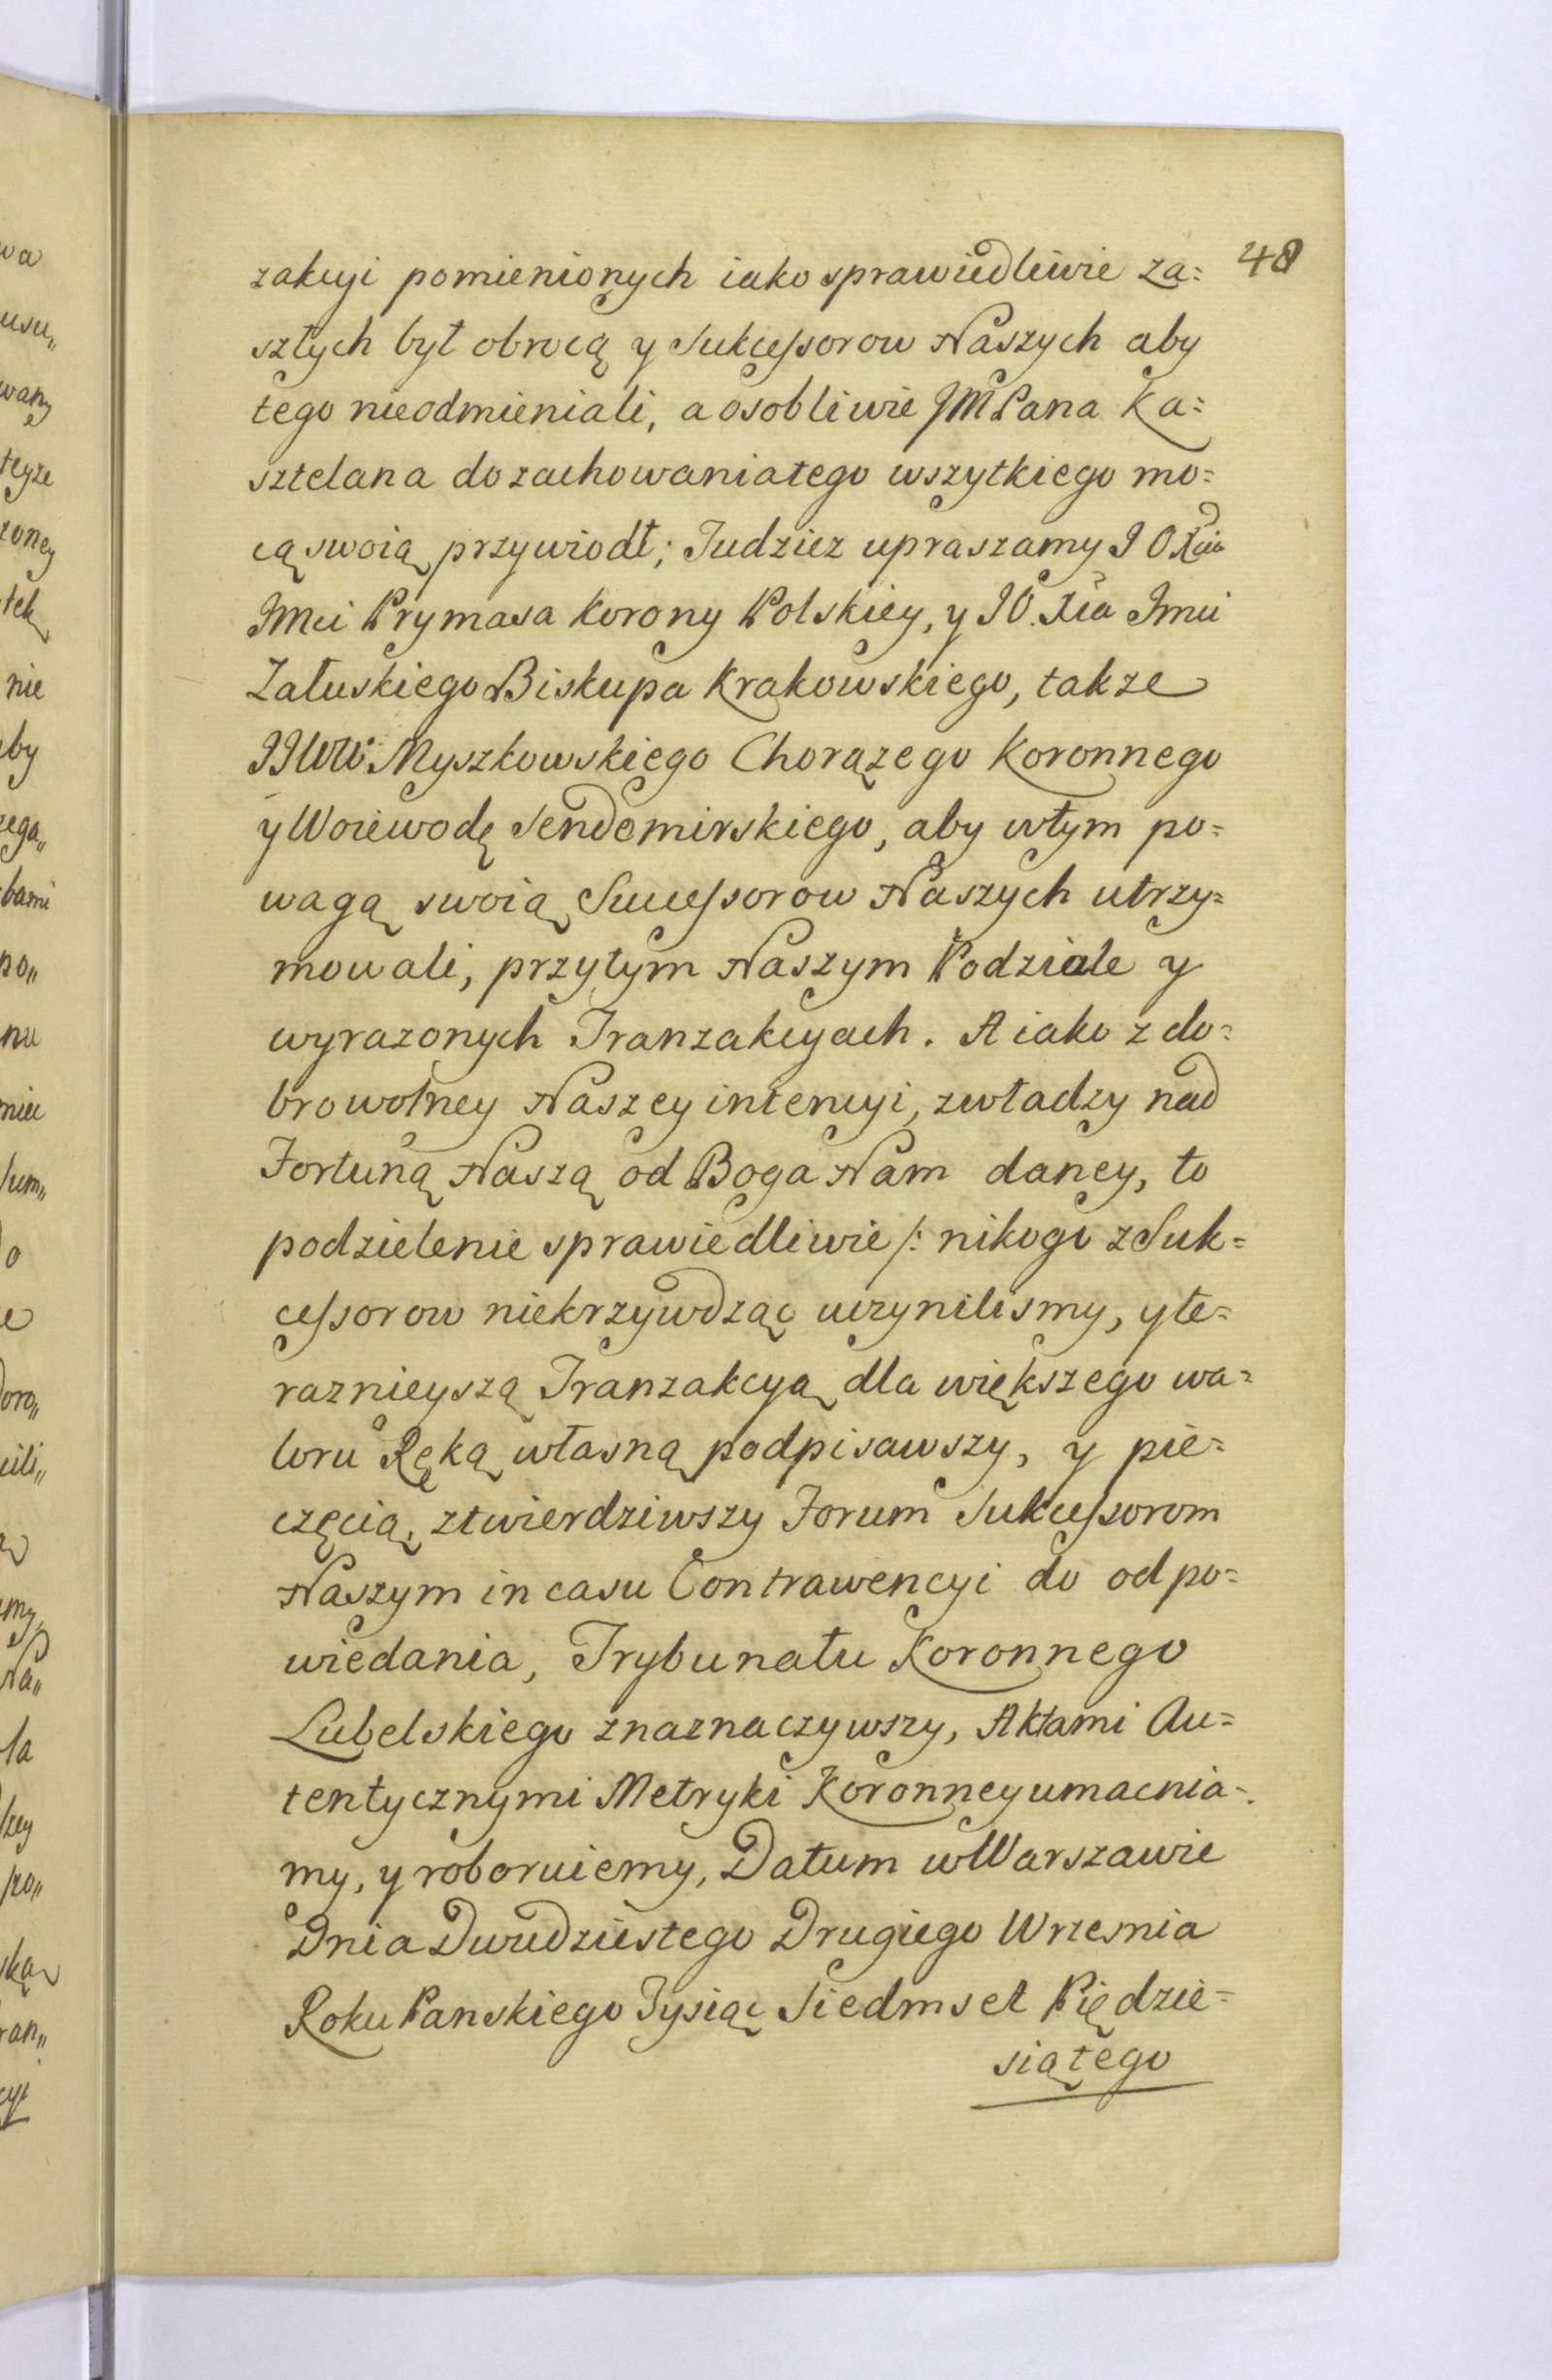 48
zakcyi pomienionych iako sprawiedliwie za=
szłych był obrocą y Sukcessorow Naszych aby
tego nieodmieniali, a osobliwie JMPana Ka=
sztelana do zachowania tego wszytkiego mo=
cą swoią przywiodł; Tudziez upraszamy J O Xcia
JMci Prymasa Korony Polskiey, y JO. Xia Jmci
Załuskiego Biskupa Krakowskiego, takze
JJWW. Myszkowskiego Chorązego Koronnego
y Woiewodę Sendomirskiego, aby wtym po=
wagą swoią Successorow Naszych utrzy=
mowali, przytym Naszym Podziale y
wyrazonych Tranzakcyach. A iako z do=
browolney Naszey intencyi, zwładzy nad
Fortuną Naszą od Boga Nam daney, to
podzielenie sprawiedliwie /: nikogo z Suk=
cessorow niekrzywdząc uczynilismy, y te=
raznieyszą Tranzakcyą dla większego wa=
loru Ręką własną podpisawszy, y pie=
częcią ztwierdziwszy Forum Sukcessorom
Naszym in casu Contrawencyi do odpo=
wiedania, Trybunału Koronnego
Lubelskiego znaznaczywszy, Aktami Au=
tentycznymi Metryki Koronney umacnia=
my, y roboruiemy, Datum w Warszawie
Dnia Dwudziestego Drugiego Wrzesnia
Roku Panskiego Tysiąc Siedmset Piędzie=
siątego